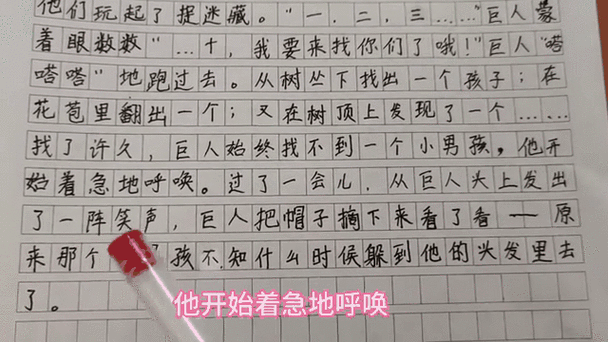 他们玩起了捉迷藏。“一，二，三……”巨人蒙
着眼数数“…十，我要来找你们了哦！”巨人“嗒
嗒嗒”地跑过去。从树丛下找出一个孩子；在
花苞里翻出一个；又在树顶上发现了一个……
找了许久，巨人始终找不到一个小男孩，他开
始着急地呼唤。过了一会儿，从巨人头上发出
了一阵笑声，巨人把帽子摘下来看了看——原
来那个 孩不知什么时候躲到他的头发里去
了。
他开始着急地呼唤